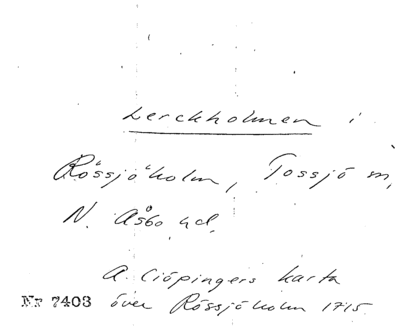 Lerckholmen i
Rössjöholm, Tossjö m,
N. Åsbo hd.
A. Ciöpingers karta
Nr 7403 över Rössjöholm 1715.